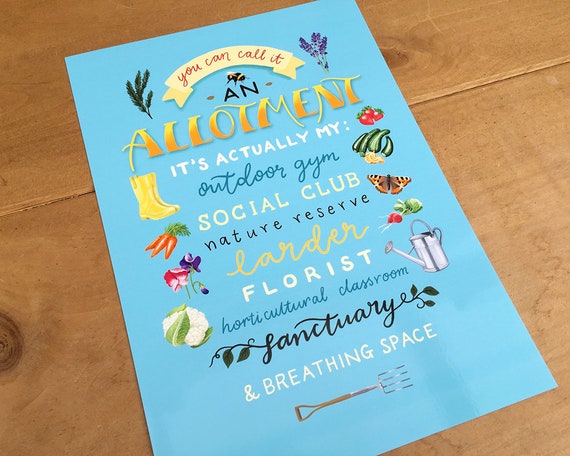 you can call it
AN
ALLOTMENT
IT'S ACTUALLY MY:
outdoor gym
SOCIAL CLUB
nature reserve
larder
FLORIST
horticultural classroom
sanctuary
& BREATHING SPACE